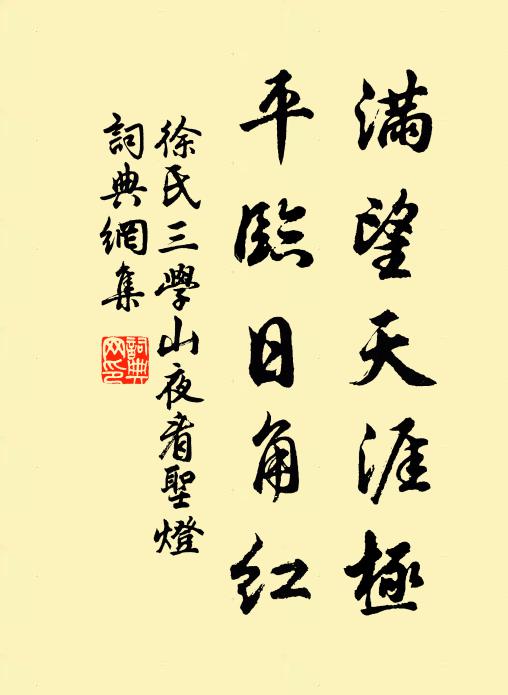 滿望天涯極
平臨日角紅
徐氏三學山夜看聖燈
詞典網集
詞典
网印